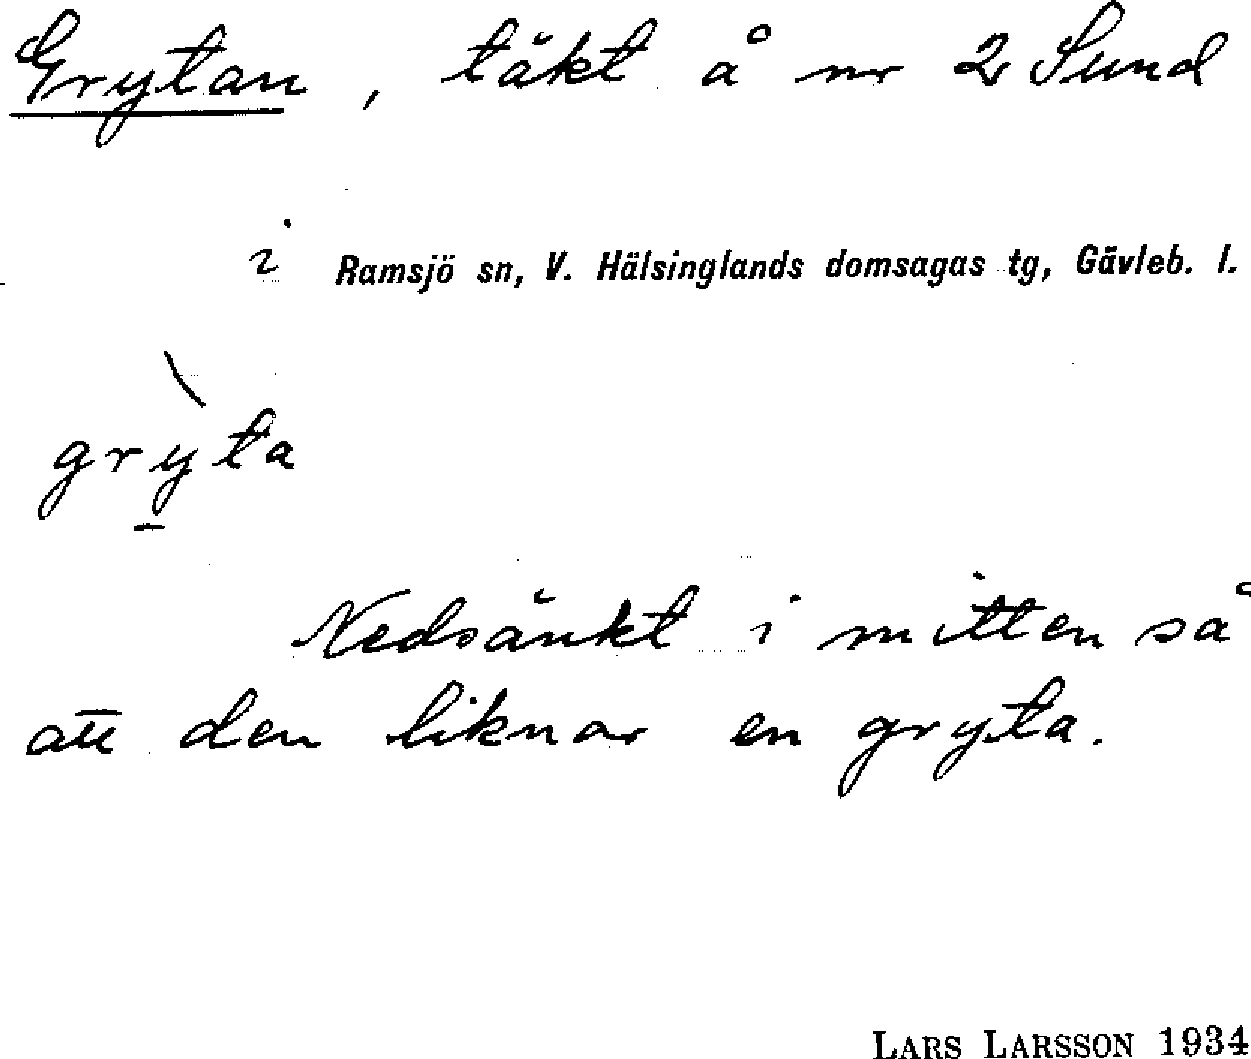 Grytan, täkt å nr 2 Sund
i Ramsjö sn, V. Hälsinglands domsagas tg, Gävleb. l.
grỳ̠ta
Nedsänkt i mitten så
att den liknar en gryta.
LARS LARSSON 1934